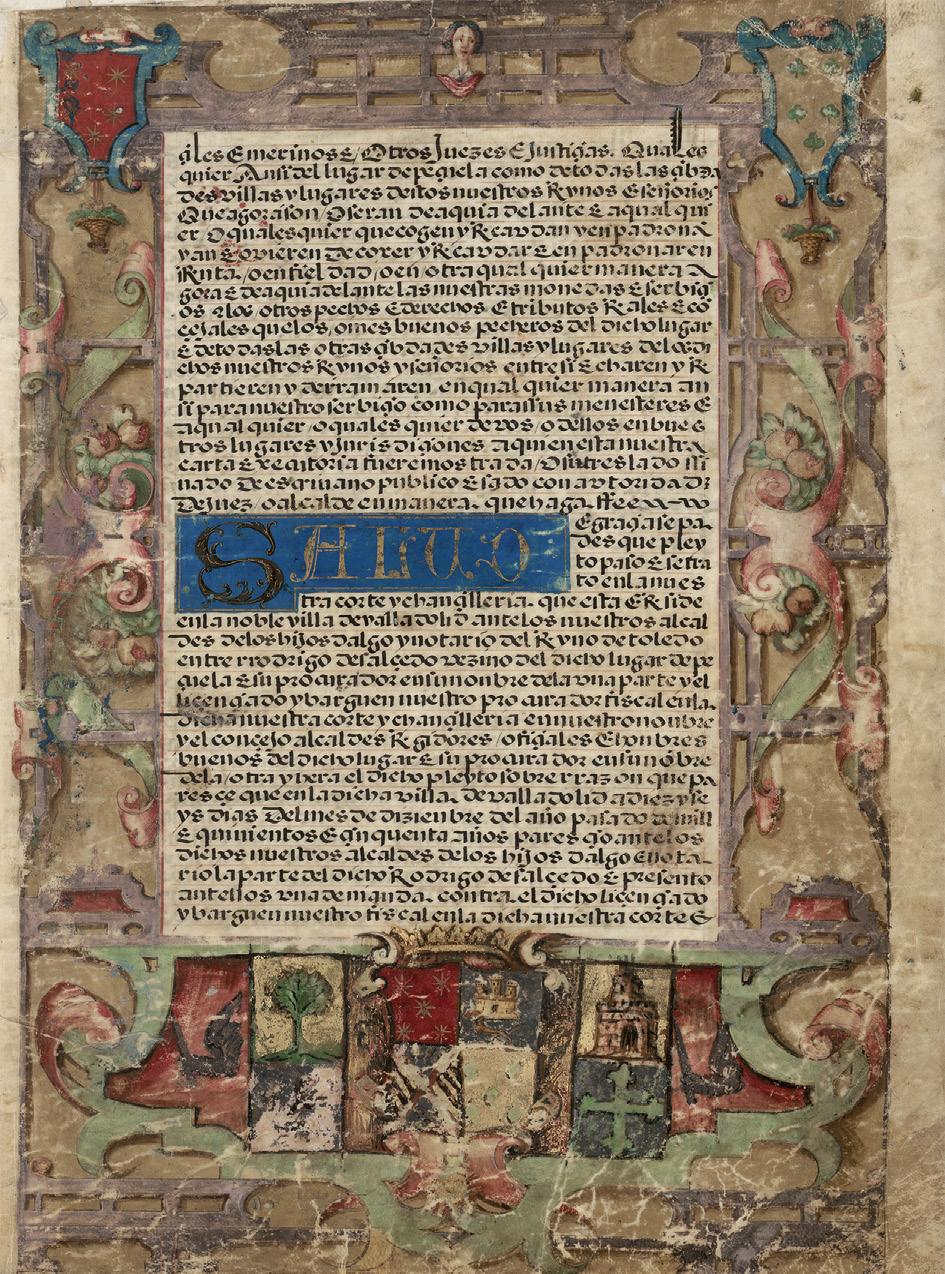 q̃les E merinos E/Otros Juezes E Justiçias. Quales
quier Ansi del lugar de peçuela como de todas las çibda
des villas y lugares destos nuestros Rynos E señorios
Que agora son/O seran de aqui a delante E a qual qui
er/O quales quier que cogen y Recavdan y en padronã
y an E ovieren de coxer y Recavdar E en padronar en
Renta/o en fiel dad/o en/otra qual quier manera A
gora E de aqui a delante las nuestras monedas E serbiçi
os E los/otros pechos E derechos E tributos Reales E cõ
cejales que los/omes buenos pecheros del dicho lugar
E de todas las otras çibdades villas y lugares de los di
chos nuestros Rynos y señorios entre si E charen y Re
partieren y derramaren en qual quier manera an
si para nuestro serbiçio como para sus menesteres E
a qual quier/o quales quier de vos/o dellos en bues
tros lugares y Juris diçiones a quien esta nuestra
carta Executoria fuere mostrada/O su tres lado si
nado de escriuano publico E sacado con avtoridad
De juez/o alcalde en manera que haga ffee
SALUD
E graçia sepa
des que pley
to paso E se tra
to en la nues
tra corte y chançilleria que esta E Rside
en la noble villa de valladolid ante los nuestros alcal
des de los hijos dalgo y notario del Ryno de toledo
entre rrodrigo de salçedo vezino del dicho lugar de pe
çuela E su procurador en su nonbre de la vna parte y el
liçençiado ybarguen nuestro procurador fiscal en la
dicha nuestra corte y chançilleria en nuestro nonbre
y el concejo alcaldes Regidores/ofiçiales E honbres
buenos del dicho lugar E su procurador en su nõbre
de la/otra y hera el dicho pleyto sobre rrazon que pa
resce que en la dicha villa de valladolid a diez y se
ys dias Del mes de dizienbre del año pasado de mill
E quinientos E çinquenta años paresçio ante los
dichos nuestros alcaldes de los hijos dalgo E nota
rio la parte del dicho Rodrigo de salçedo E presento
ante llos vna demanda contra el dicho liçençiado
ybarguen nuestro fiscal en la dicha nuestra corte E